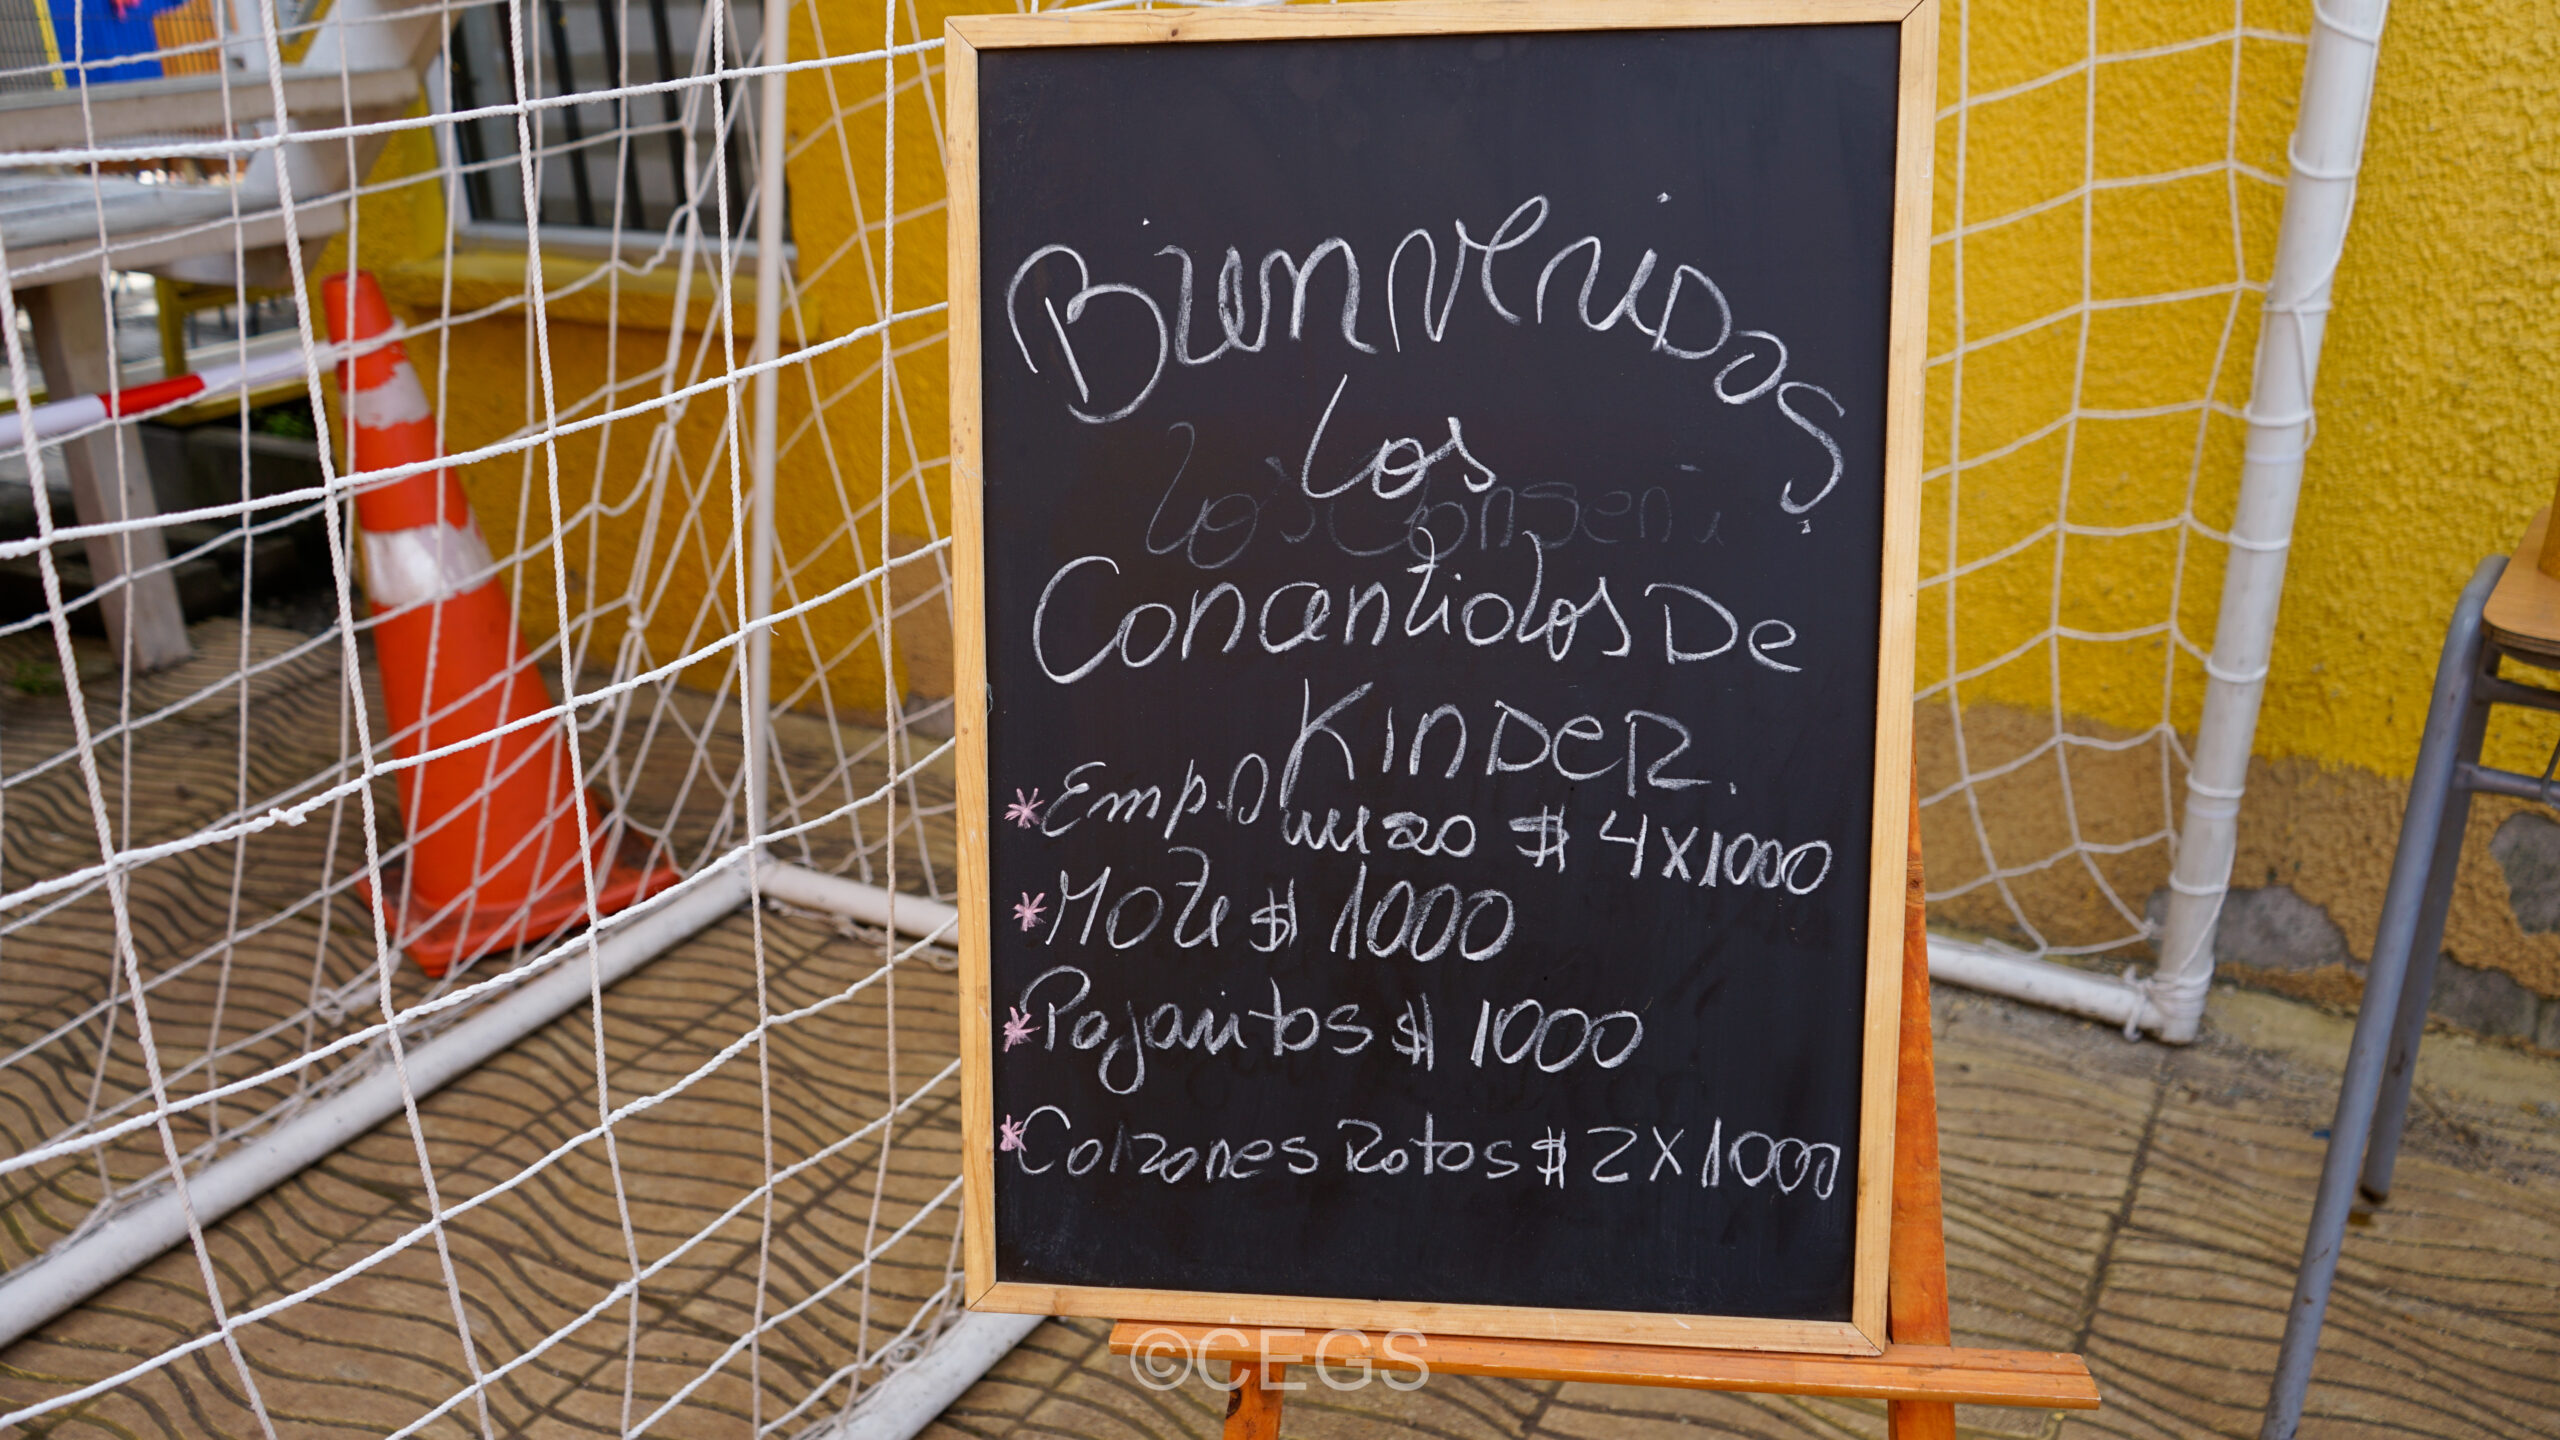 Bienvenidos
Los
Los Conseni
Concentidos De
KINDER.
*Emp.D $ 4x1000
*Mote $ 1000
*Pajaritos $ 1000
*Calzones Rotos $ 2x1000
©CEGS